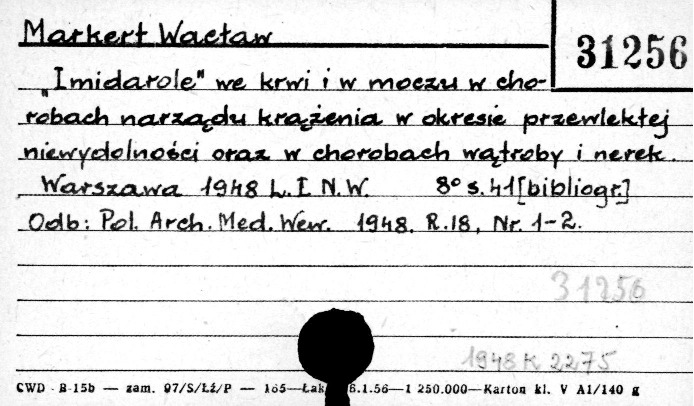 Markert Wacław
31256
"Imidarole" we krwi i w moczu w cho-
robach narządu krążenia w okresie przewlekłej
niewydolności oraz w chorobach wątroby i nerek
Warszawa 1948 L.I N.W. 8° s.41 [bibliogr.]
Odb: Pol. Arch. Med. Wew. 1948. R.18, Nr. 1-2.
31256
1948 K 2275
CWD - R-15b — zam. 97/S/Łź/P — 165—Łak 6.1.56—1 250.000—Karton kl. V A1/140 g